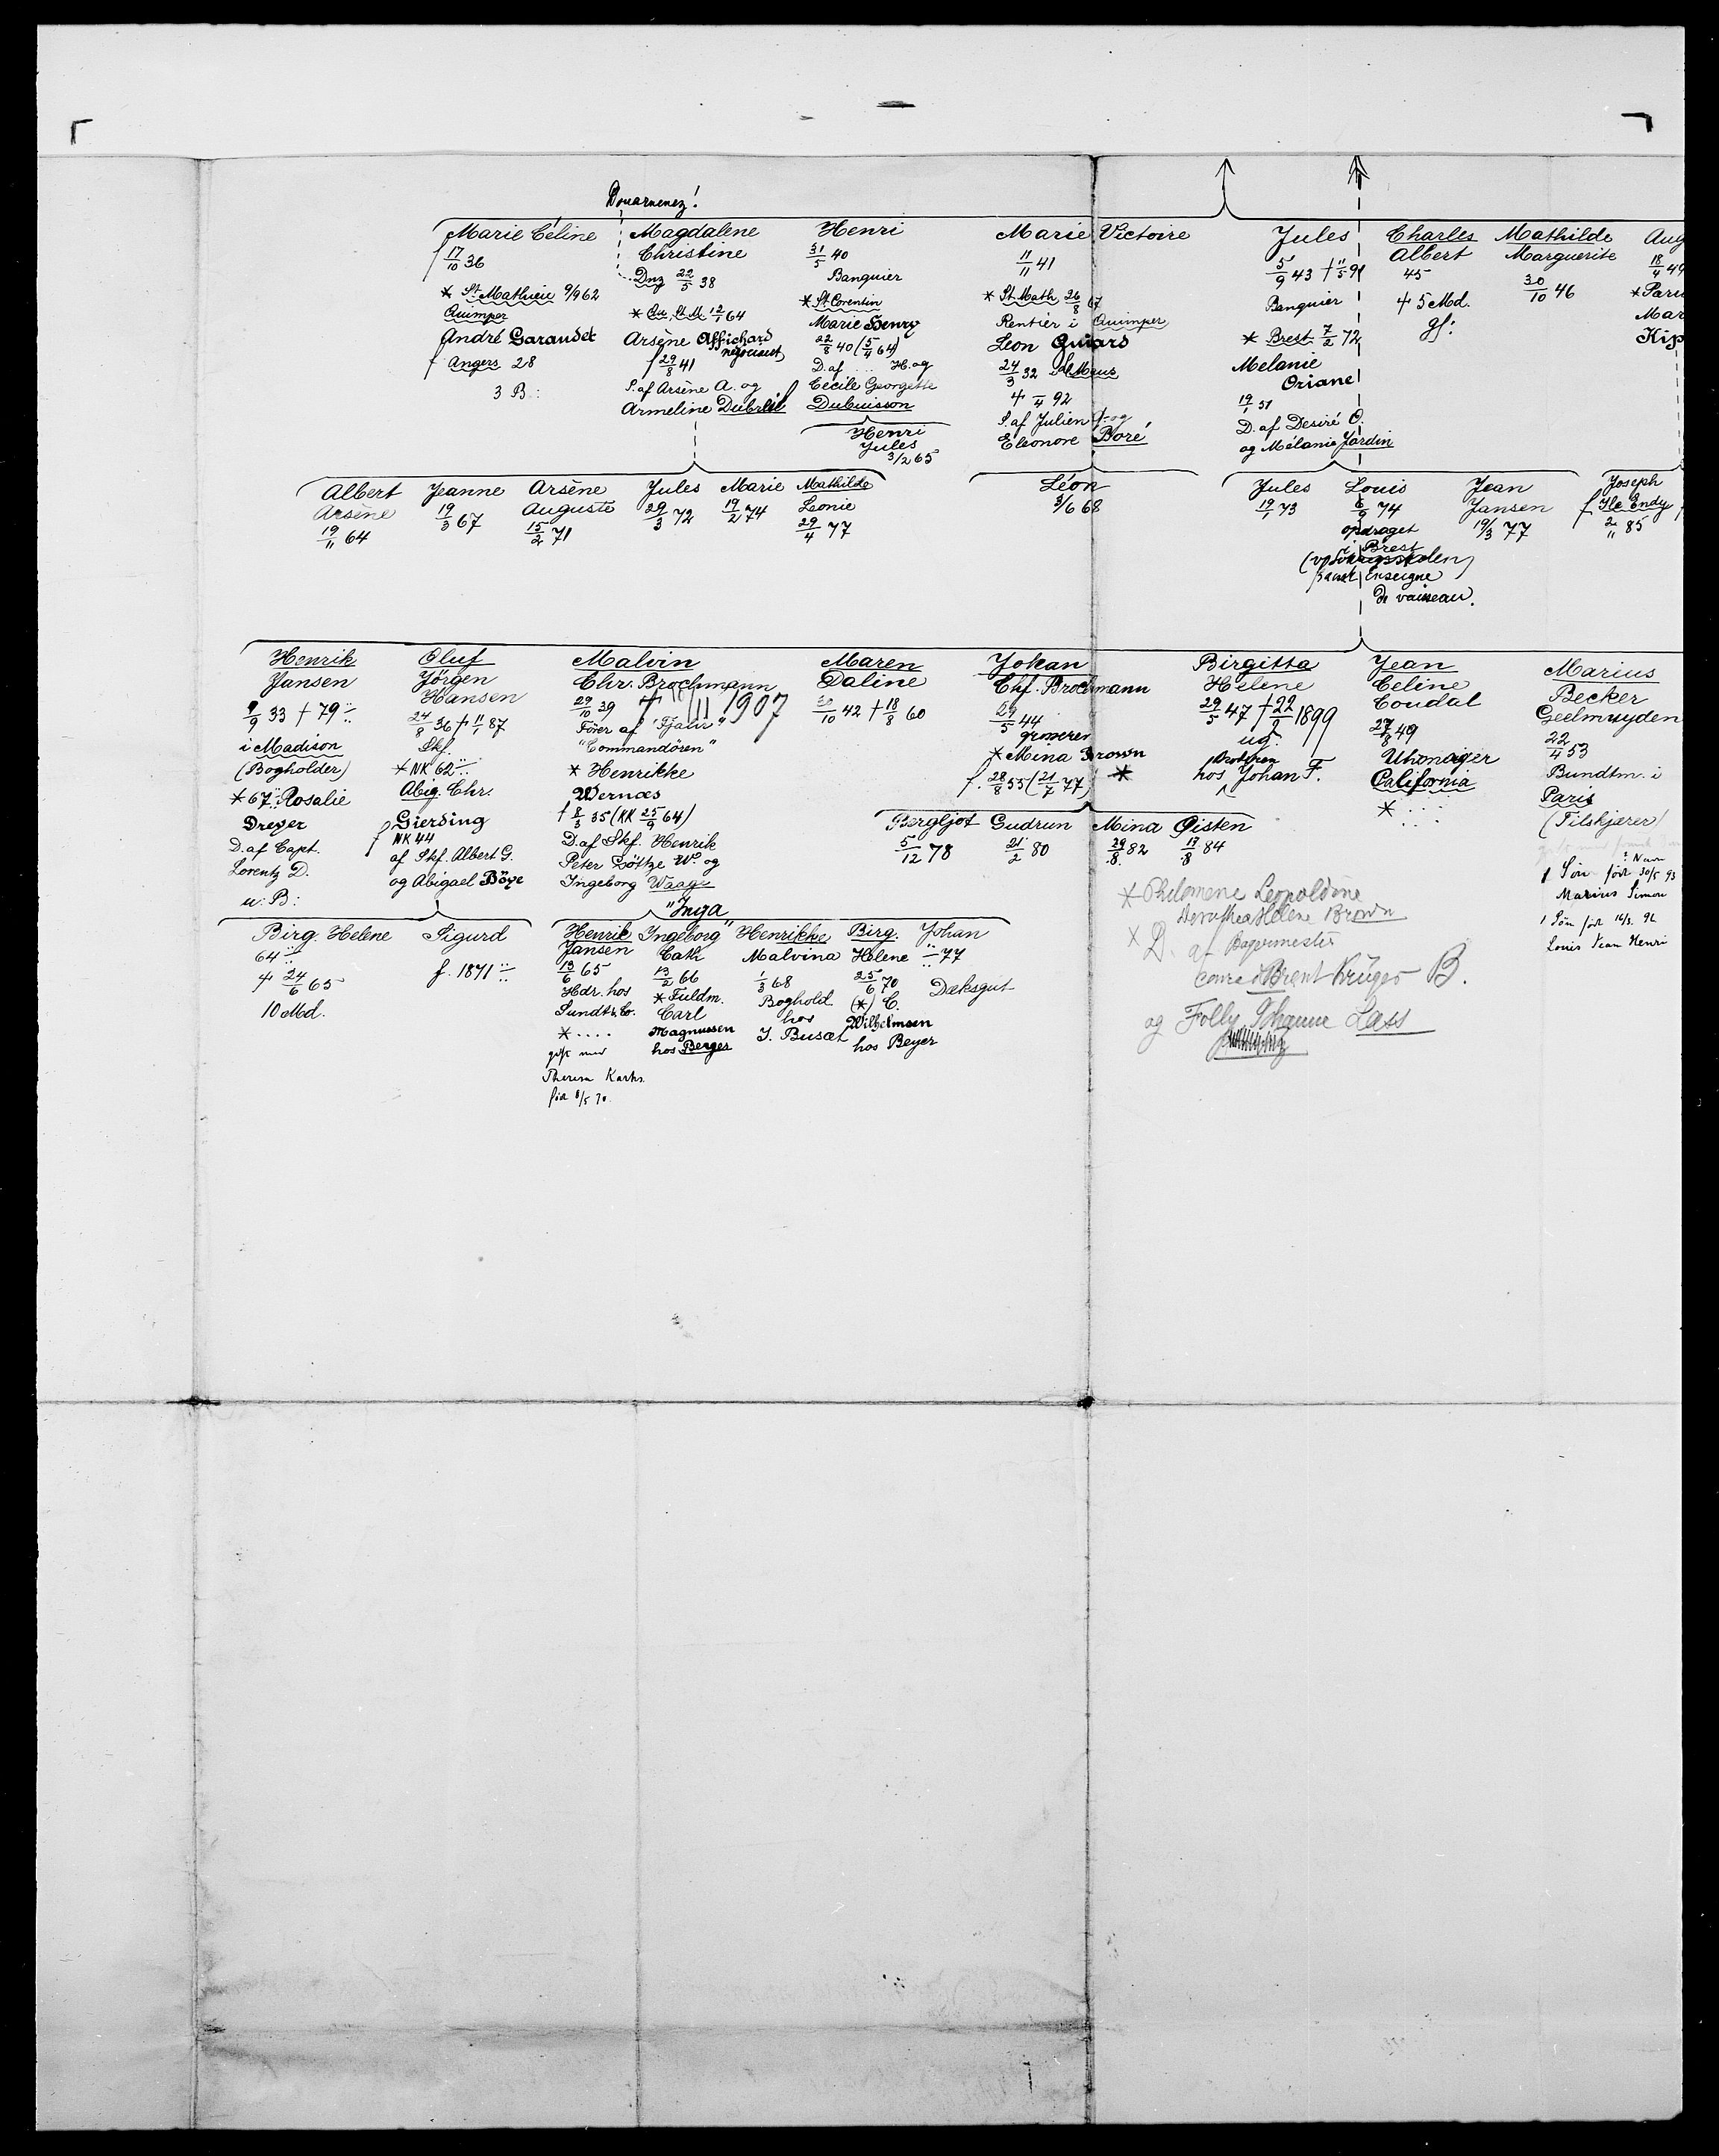 Douarnenez!
Marie Céline
17/10 36
* St Mathieu 9/9 62
Quimper
André Garaudet
f Angers 28
3 B:
Magdalene
Christine
Dnz 22/5 38
* Qu. St. M. 12/1 64
Arsène Affichard
négociant
f 29/8 41
S. af Arsène A. og
Armeline Dubreil
Henri
31/5 40
Banquier
* St. Corentin
Marie Henry
22/8 40 (5/4 64)
D. af .... H. og
Cécile Georgette
Dubuisson
Henri
Jules
3/2 65
Marie Victoire
11/11 41
* St Math 26/8 67
Rentier i Quimper
Leon Guiard
24/3 32 Le Mans
4/ 92
S. af Julien G. og
Eleonore Boré
Jules
5/9 43 † 11/5 91
Banquier
* Brest 7/2 72
Melanie
Oriane
19/1 51
D. af Desiré O.
og Mélanie Jardin
Charles
Albert
45
† 5 Md.
gf:
Mathilde
Marguerite
30/10 46
Aug
18/4 49
* Paris
Mar
Kip
Albert
Arsène
19/11 64
Jeanne
19/3 67
Arsène
Auguste
15/2 71
Jules
29/3 72
Marie
19/2 74
Mathilde
Leonie
29/4 77
Léon
3/6 68
Jules
19/1 73
Louis
6/9 74
opdraget
i Brest
Enseigne
de vaisseau.
Jean
Jansen
19/3 77
Joseph
f Ile Endy
2/11 85
Henrik
Jansen
9/9 33 † 79
i Madison
(Bogholder)
* 67 Rosalie
Dreyer
D. af Capt.
Lorentz D.
u. B:
Oluf
Jörgen
Hansen
24/8 36 † 11/1 87
Skf.
* NK 62
Abig. Chr.
Gierding
f NK 44
af Skf. Albert G.
og Abigael Böye
Malvin
Chr. Brochmann
29/10 39 † 18/11 1907
Förer af "Tjalir"
"Commandören"
* Henrikke
Wernæs
f 8/3 35 (KK 25/9 64)
D. af Skf. Henrik
Peter Göttze W. og
Ingeborg Waage
Maren
Daline
30/10 42 † 18/8 60
Johan
Chf. Brochmann
29/5 44
grosserer
* Mina Brown
f. 28/8 55 (21/7 77) *
Birgitta
Helene
29/5 47 † 22/9 1899
ug.
broderen
hos Johan F.
Jean
Celine
Coudal
27/8 49
Uhrmager
California
* ....
Marius
Becker
Geelmuyden
22/4 53
Bundtm. i
Paris
(Tilskjærer)
? Navn
1 Søn født 30/5 93
Marius Simon
1 Søn født 16/2. 96
Louis Jean Henri
Bergljot
5/12 78
Gudrun
21/2 80
Mina
29/8 82
Øisten
17/8 84
* Philomene Leopoldine
Dorothea Helene Brown
* D. af Bagermester
Conrad Brent Krüger B.
og Folly Johanne Lass
Birg. Helene
64
† 24/6 65
10 Md.
Sigurd
f. 1871
"Inga"
Henrik
Jansen
13/6 65
Hdr. hos
Sundt & Co.
* ....
gift med
Theresa Karhs.
fød 8/5 70
Ingeborg
Cath
13/2 66
* Fuldm.
Carl
Magnussen
hos Berger
Henrikke
Malvina
1/3 68
Boghold.
hos
J. Busæt
Birg.
Helene
25/6 70
(*) C.
Wilhelmsen
hos Beyer
Johan
77
Dæksgut